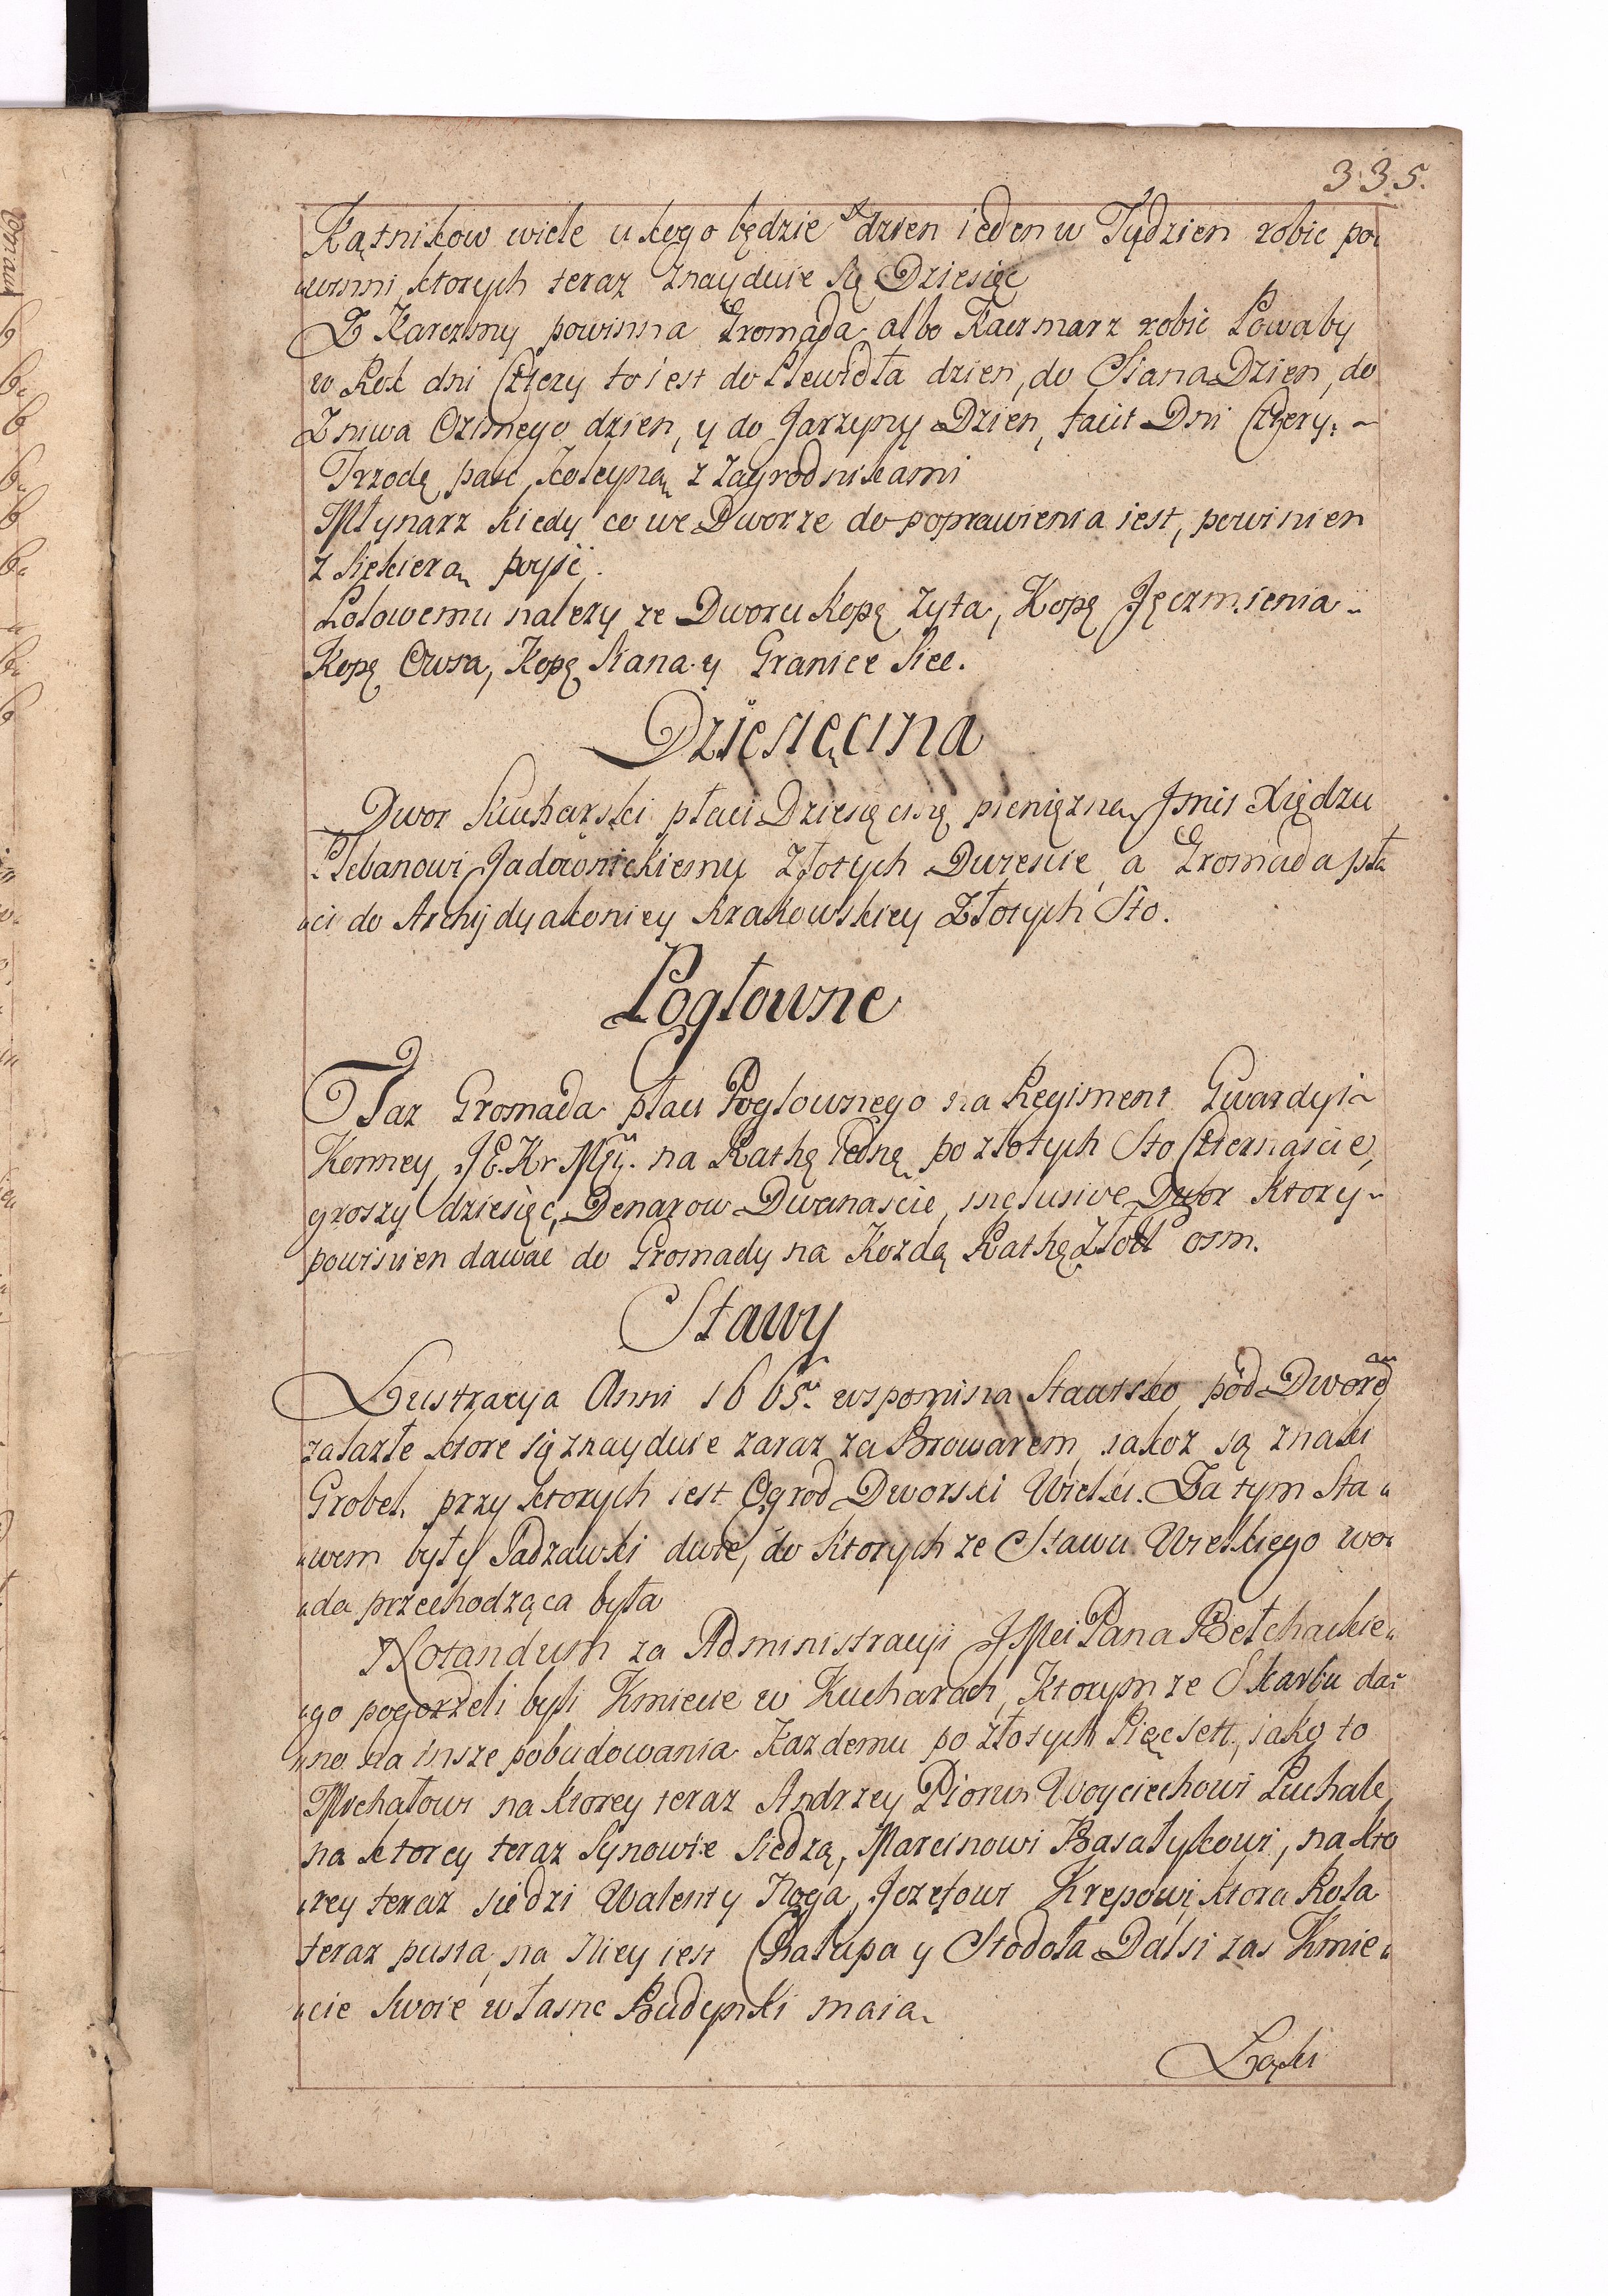 335.
Kątnikow wiele u kogo będzie dzien ieden w Tydzien robic po„
„winni, ktorych teraz znayduie się Dziesięc
Z Karczmy powinna Gromada albo Kaczmarz robic Powaby
w Rok dni Cztery to iest do Plewidła dzien, do Siana Dzien, do
Zniwa Ozimego dzien, y do Jarzyny Dzien, facit Dni Cztery. ~
Trzodę pasc, koleyną z Zagrodnikami
Młynarz kiedy co we Dworze do poprawienia iest, powinien
z Siekierą poysć.
Polowemu nalezy ze Dworu Kopę Zyta, Kopę Jęczmienia ~
Kopę Owsa, Kopę Siana y Granice Siec.
Dziesięcina
Dwor Kucharski płaci Dziesięcinę pienięzną Jmis Xiędzu
Plebanowi Jadownickiemu Złotych Dwiescie, a Gromada pła
„ci do Archydyakoniey Krakowskiey Złotych Sto.
Pogłowne
Taz Gromada płaci Pogłownego na Regiment Gwardyi ~
Konney J. E. Kr Mći. na Rathę iedną po złotych Sto Czternascie,
groszy dziesięc, Denarow Dwanascie, inclusive Dwor ktory ~
powinien dawac do Gromady na Kozdą Rathę Złott osm.
Stawy
Lustracyja Anni 1665. wspomina Stawisko pod Dworem
zalazłe ktore się znayduie zaraz za Browarem, iakoz są znaki
Grobel, przy ktorych iest Ogrod Dworski Wielki. Za tym Sta„
„wem były Sadzawki dwie, do ktorych ze Stawu Wielkiego wo„
„da przechodząca była
Notandum za Administracyi JMci Pana Bełchackie„
„go pogorzeli byli Kmiecie w Kucharach, Ktorym ze Skarbu da„
„no na insze pobudowania Kazdemu po złotych Pięcsett, iako to
Michałowi na ktorey teraz Andrzey Piorun Woyciechowi Puchale,
na ktorey teraz Synowie siedzą, Marcinowi Basałykowi, na kto
„rey teraz siedzi Walenty Noga, Jozefowi Krepowi, ktora Rola
teraz pusta, na Niey iest Chałupa y Stodoła Dalsi zas Kmie„
„cie swoie własne Budynki maią.
Łąki